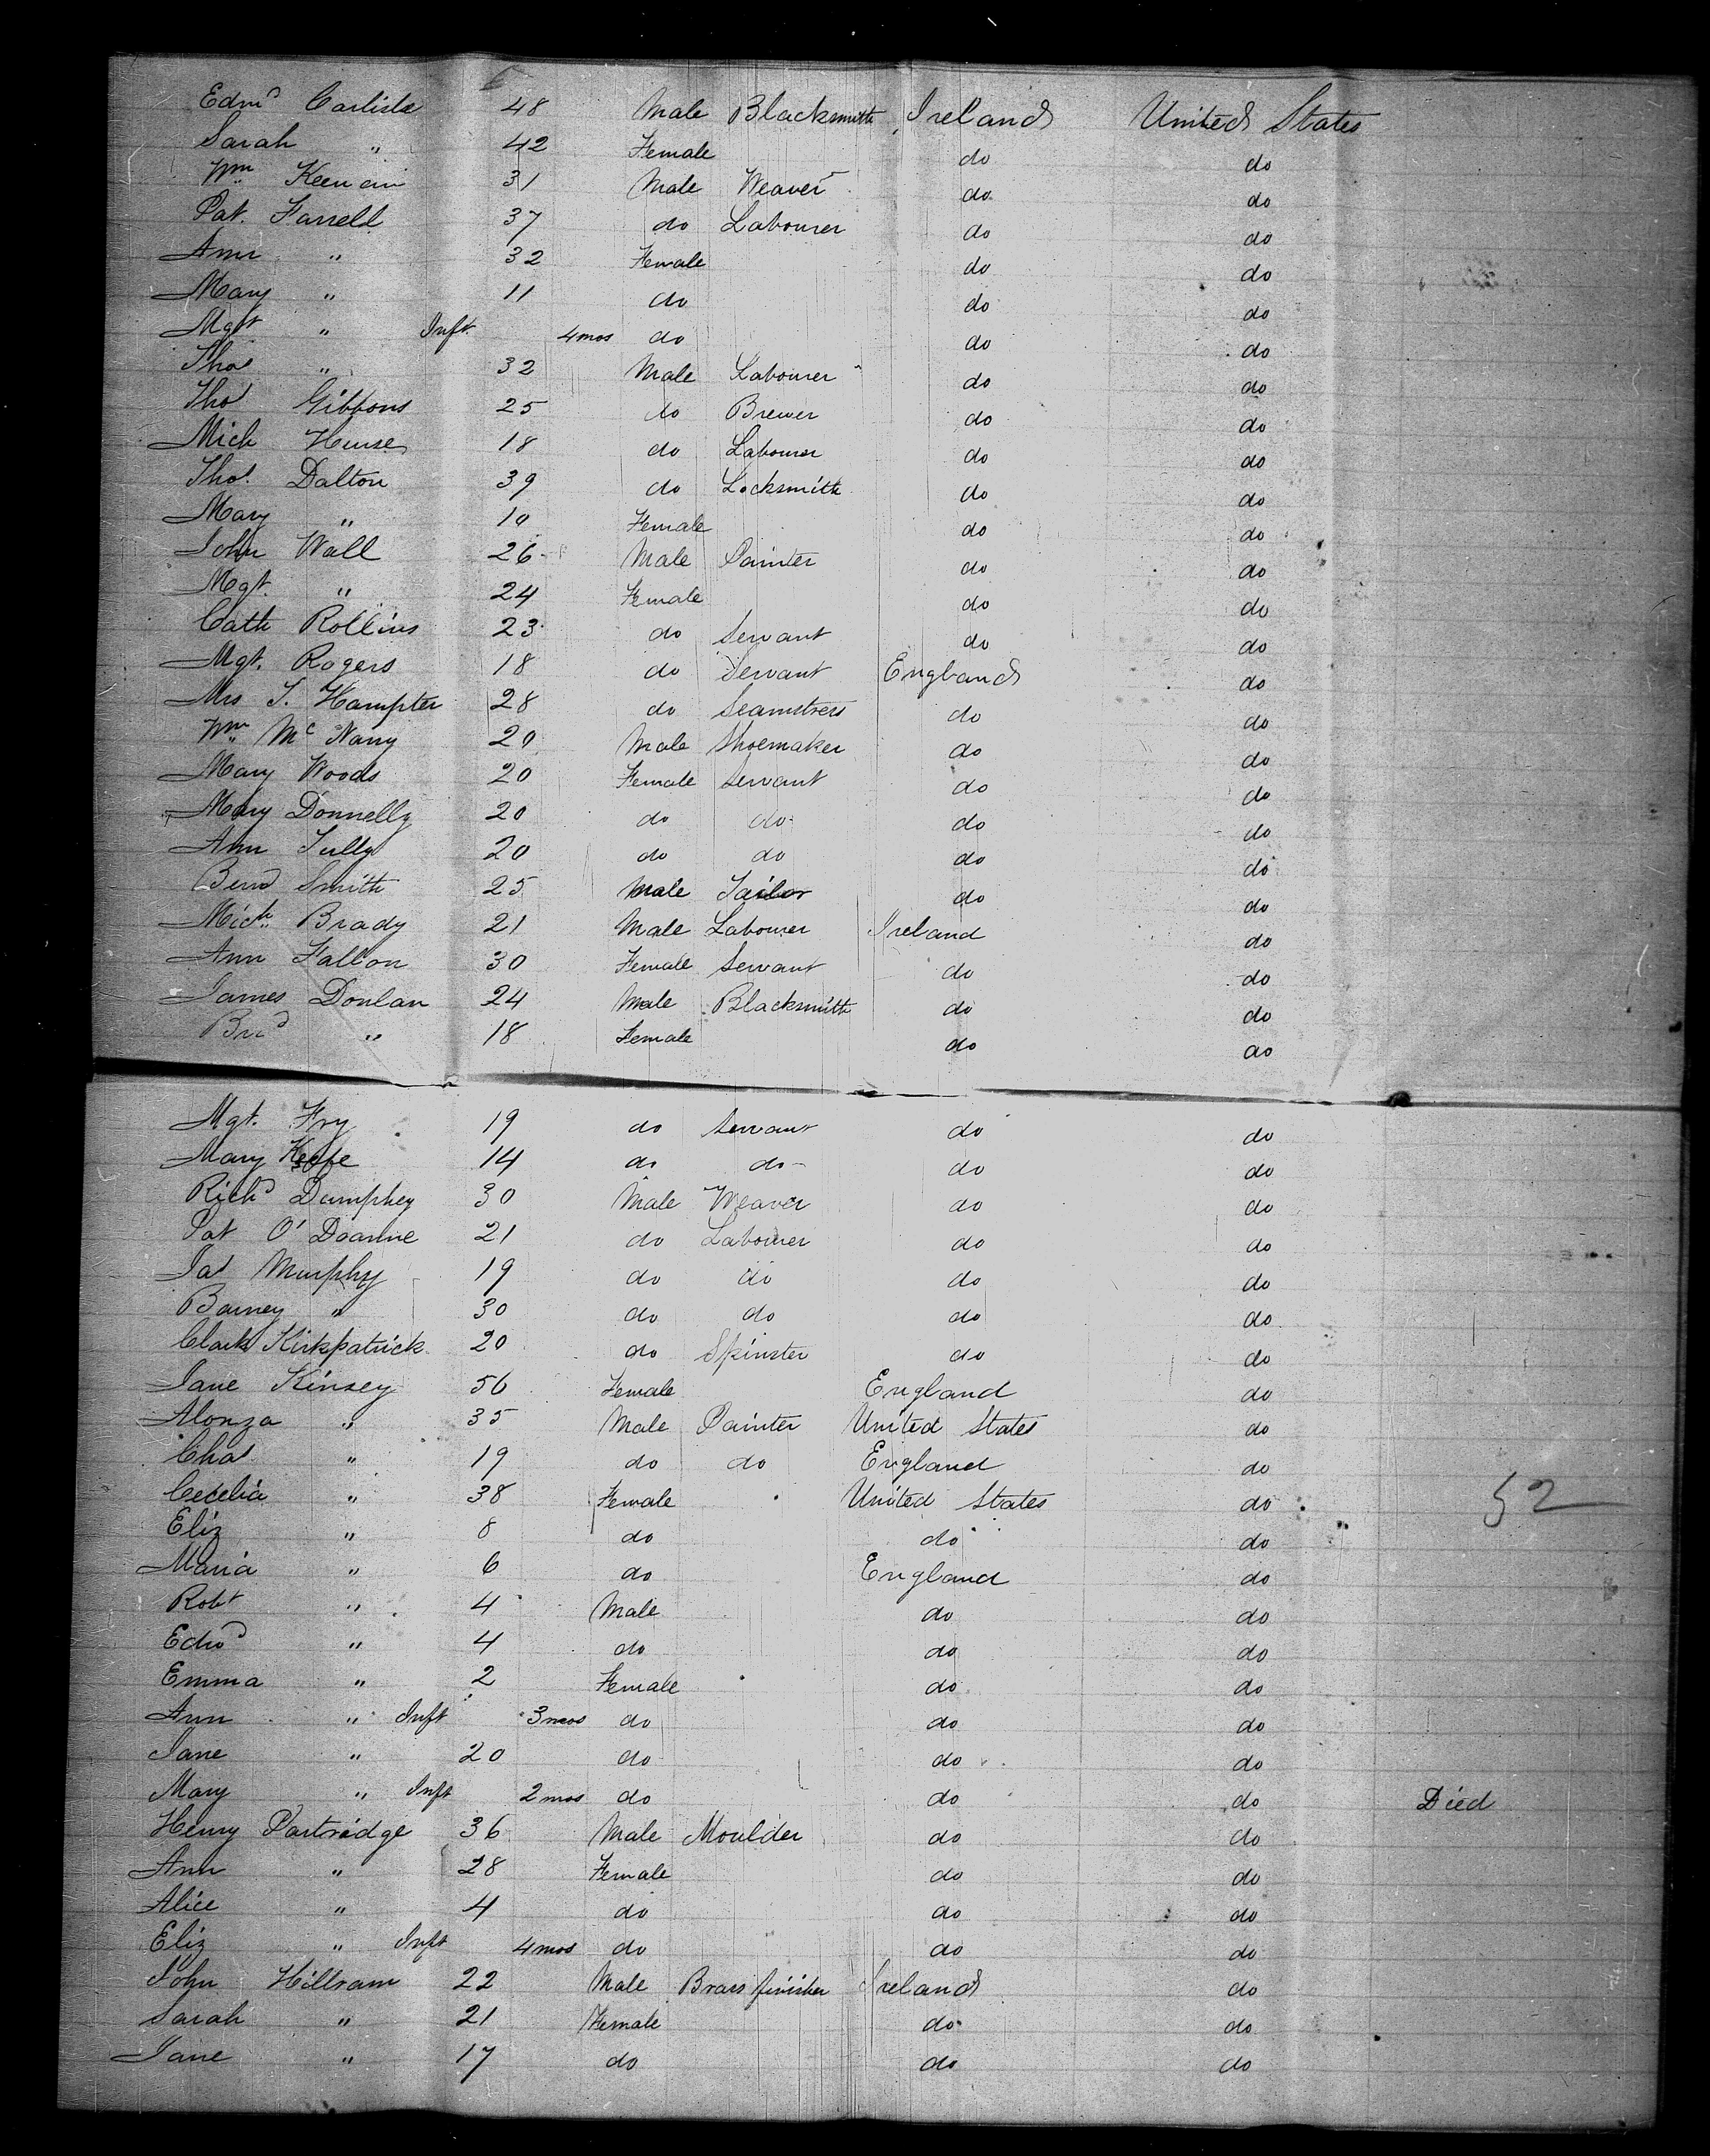 Edmd Carlisle 48 Male Blacksmith Ireland United States
Sarah " 42 Female do do
Wm Keenan 31 Male Weaver do do
Pat. Farrell 37 do Labourer do do
Ann " 32 Female do do
Mary " 11 do do do
Mgt " Inft. 4 mos do do do
Thos " 32 Male Labourer do do
Thos Gibbons 25 do Brewer do do
Mich 18 do Labourer do do
Thos. Dalton 39 do Locksmith do do
Mary " 10 Female do do
John Wall 26 Male Painter do do
Mgt. " 24 Female do do
Cath Rollins 23 do Servant do do
Mgt. Rogers 18 do Servant England do
Mrs Hampter 28 do Seamstress do do
Wm Mc Nany 20 Male Shoemaker do do
Mary Woods 20 Female Servant do do
Mary Donnelly 20 do do do do
Ann Tully 20 do do do do
Bernd Smith 25 Male Tailor do do
Mich Brady 21 Male Labourer Ireland do
Ann Fallon 30 Female Servant do do
James Donlan 24 Male Blacksmith do do
Brid " 18 Female do do
Mgt. Fry 19 do Servant do do
Mary Keefe 14 do do do do
Richd Dumphey 30 Male Weaver do do
Pat 21 do Labourer do do
Jas Murphy 19 do do do do
Barney " 30 do do do do
Clark Kirkpatrick 20 do Spinster do do
Jane Kinsey 56 Female England do
Alonza " 35 Male Painter United States do
Chas " 19 do do England do
Cecelia " 38 Female United States do
Eliz " 8 do do do
Maria " 6 do England do
Robt " 4 Male do do
Edwd " 4 do do do
Emma " 2 Female do do
Ann " Inft 3 mos do do do
Jane " 20 do do do
Mary " Inft 2 mos do do do Died
Henry Partridge 36 Male Moulder do do
Ann " 28 Female do do
Alice " 4 do do do
Eliz " Inft 4 mos do do do
John Hillram 22 Male Brass finisher Ireland do
Sarah " 21 Female do do
Jane " 17 do do do
52